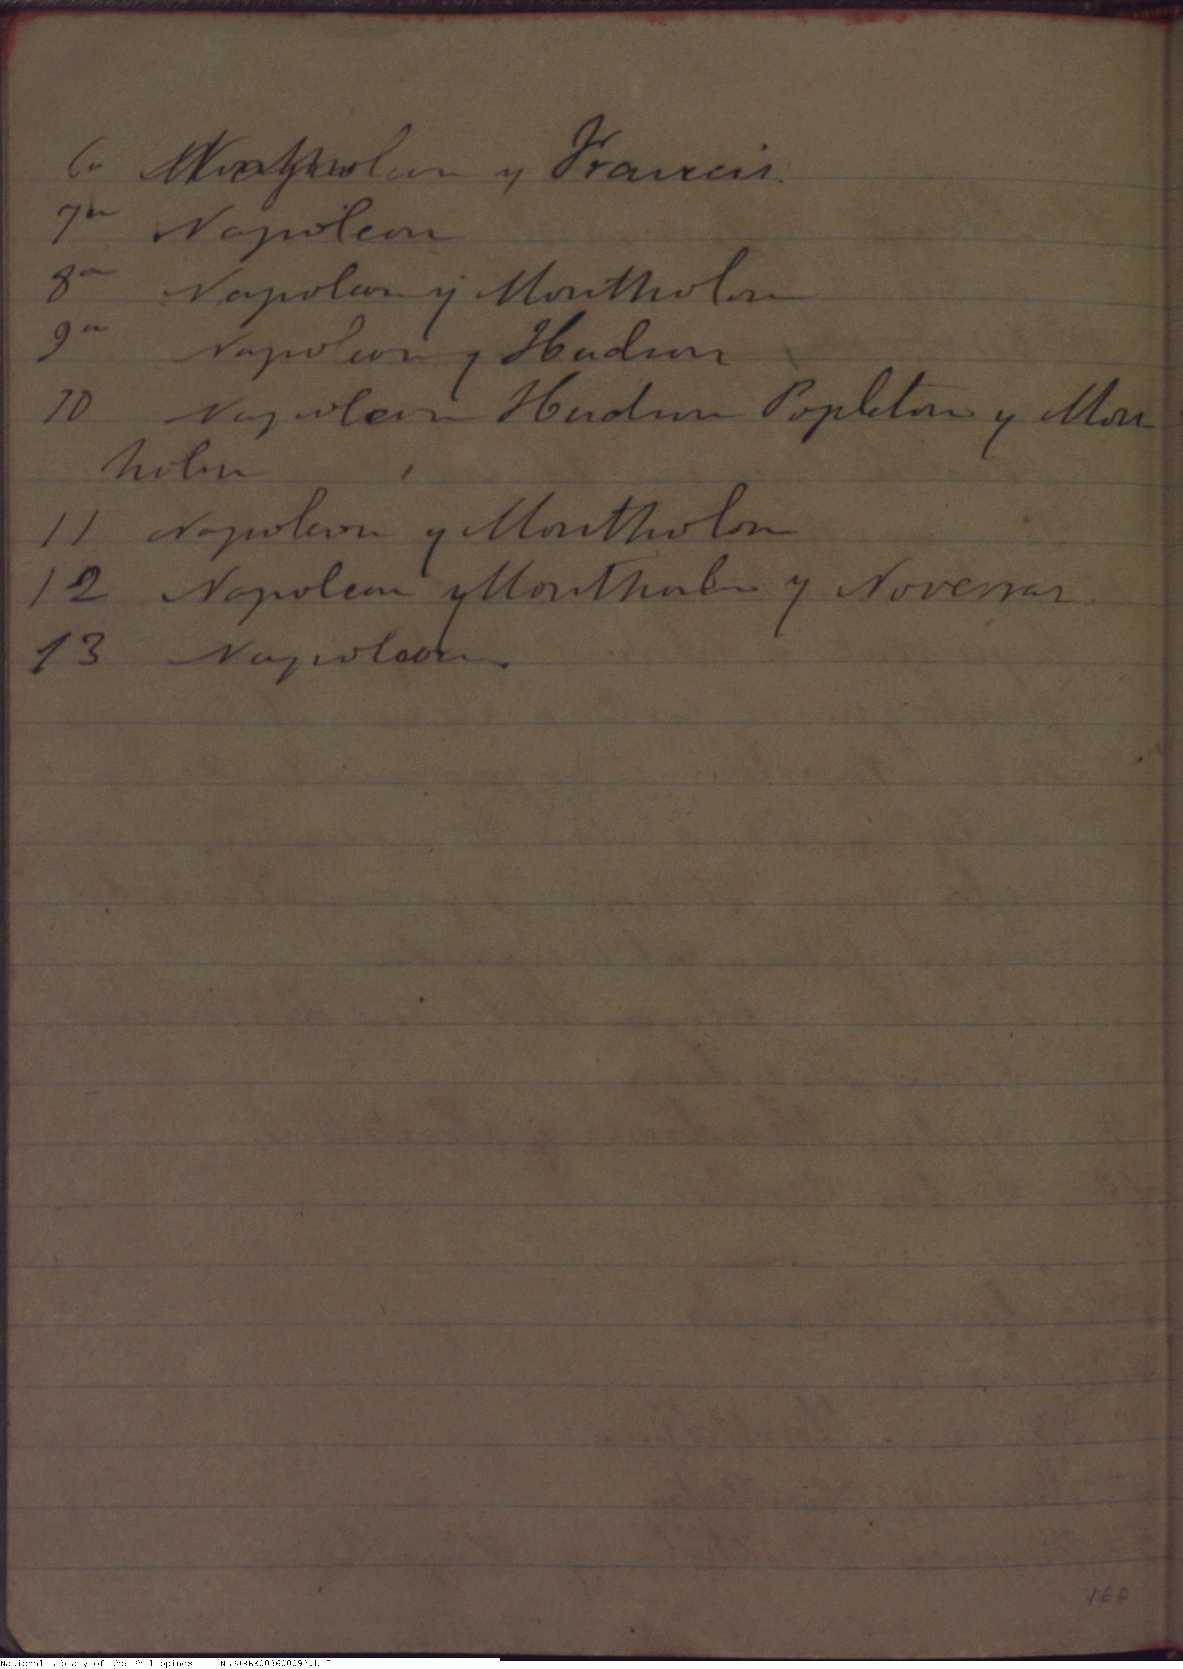 6a Montholon y Francis.
7a Napoleon
8a Napoleon y Montholon
9a Napoleon y Hudson
10 Napoleon Hudson Popleton y Mon
holon
11 Napoleon y Montholon
12 Napoleon y Montholon y Noverras.
13 Napoleon.
National Library of the Philippines